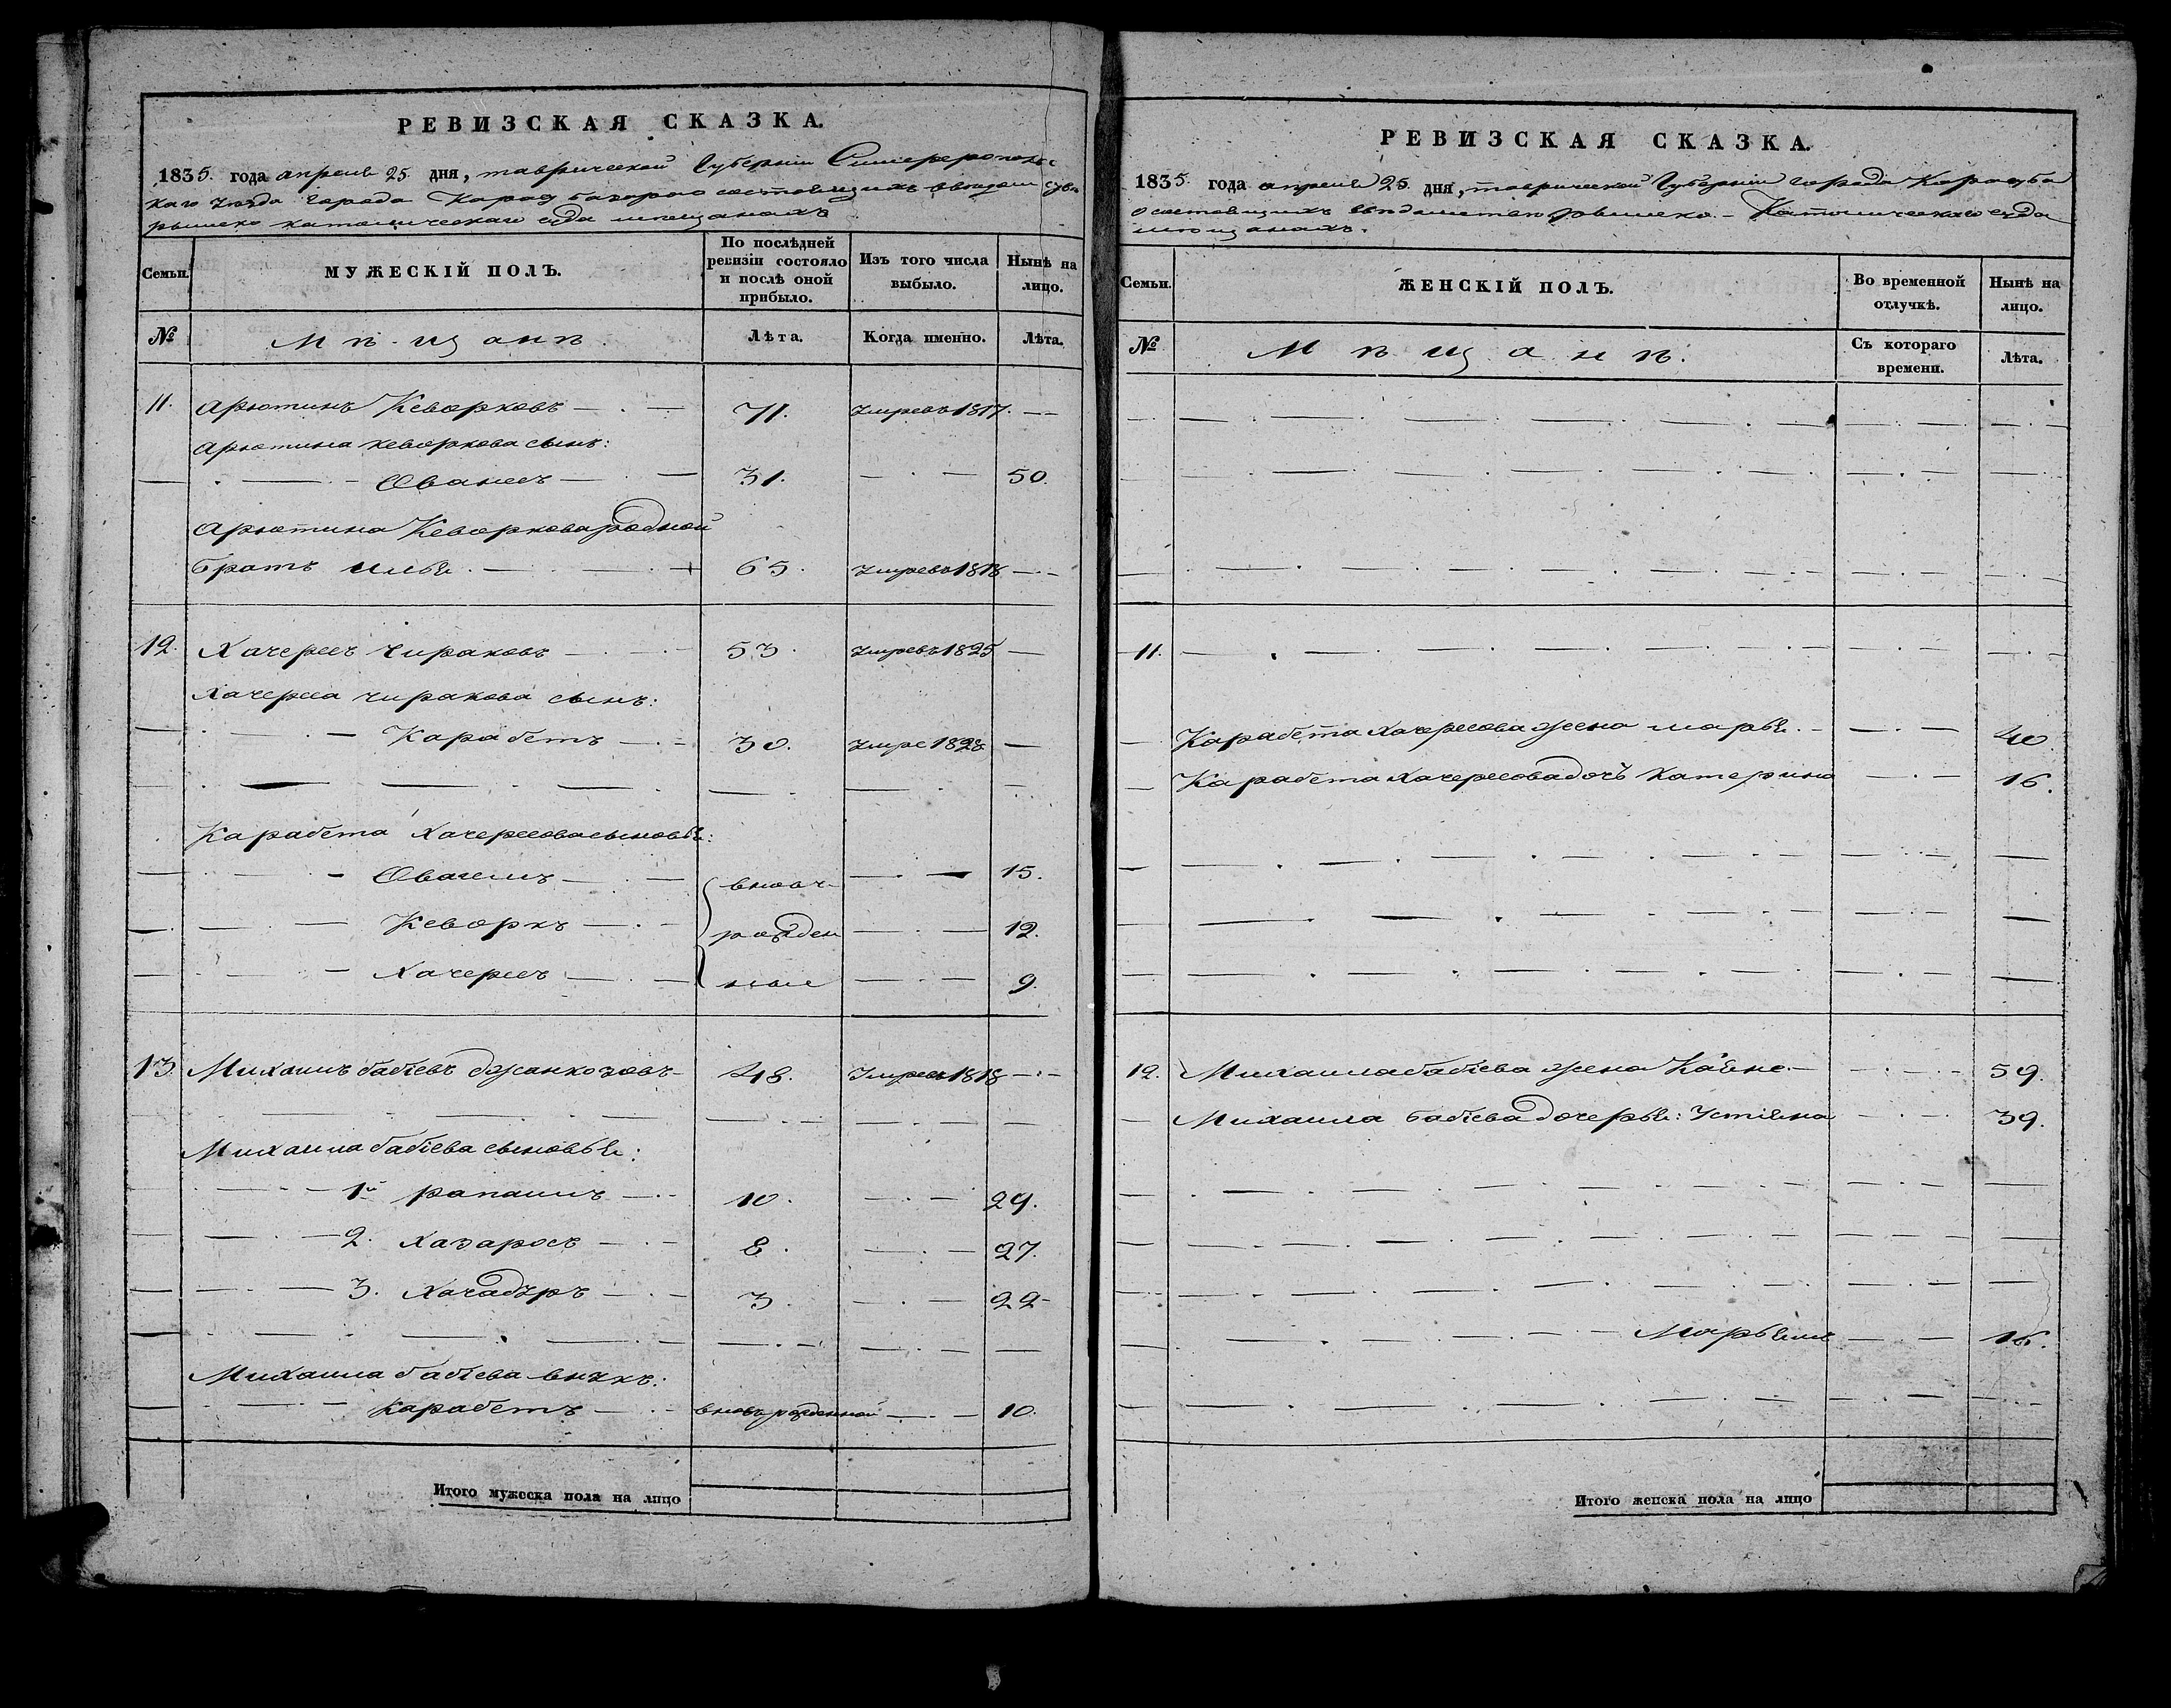 РЕВИЗСКАЯ СКАЗКА.
1835. года апреля 25 дня, таврической Губернии Симферополь
каго уѣзда города Карасубазара состоящихъ введени
римско католическаго суда мѣщанахъ
Семьи.
МУЖЕСКІЙ ПОЛЪ.
По послѣдней ревизіи состояло и послѣ оной прибыло.
Изъ того числа выбыло.
Нынѣ на лицо.
№
Мѣщанѣ.
Лѣта.
Когда именно.
Лѣта.
11. Арютинъ Кеворковъ 71. умревъ 1817.
Арютина кеворкова сынъ:
Ованесъ 31. 50.
Арютина Кеворкова родной
братъ илья 65. умревъ 1818
12. Хачересъ Чираковъ 53. умревъ 1825
Хачереса чиракова сынъ:
Карабетъ 30. умре 1828
Карабета Хачересова сыновья:
Ованесъ 15.
вновь
Кеворкъ 12.
рожден
Хачересъ 9.
ные
13. Михаилъ бабіевъ джанкозовъ 48. умре 1818
Михаила бабіева сыновья:
1й рапаилъ 10. 29.
2. Хазаросъ 8. 27.
3. Хачадуръ 3. 22
Михаила бабіева внукъ:
карабетъ вновь рожденной 10.
Итого мужеска пола на лицо
РЕВИЗСКАЯ СКАЗКА.
1835. года апреля 25. дня, таврической Губерніи города Карасуба
о состоящихъ римско-Католическаго суда
мѣщанахъ.
Семьи.
ЖЕНСКІЙ ПОЛЪ.
Во временной отлучкѣ.
Нынѣ на лицо.
№
Мѣщанѣ.
Съ котораго времени.
Лѣта.
11.
Карабета Хачересова жена марья. 40.
Карабета Хачересова дочь Катерина 16.
12. Михаила бабіева жена Каяне 59.
Михаила бабіева дочерья: Устіяна 39.
Марьямъ 16.
Итого женска пола на лицо